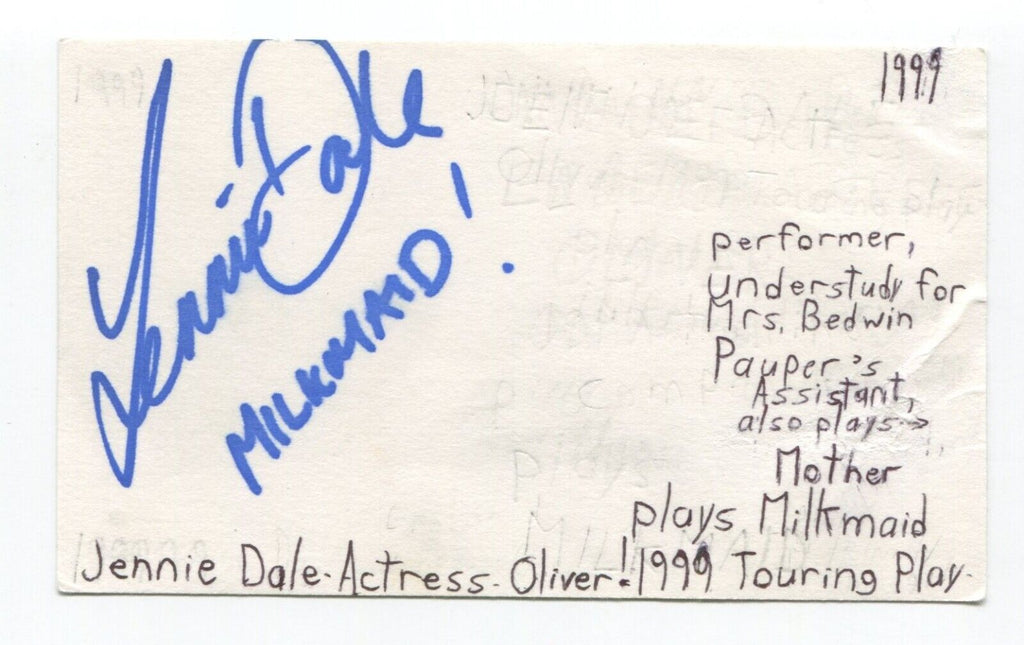 1999
Jennie Dale
MILKMAID!
performer,
understudy for
Mrs. Bedwin
Pauper's
Assistant,
also plays→
Mother
plays Milkmaid
Jennie Dale-Actress-Oliver! 1999 Touring Play-